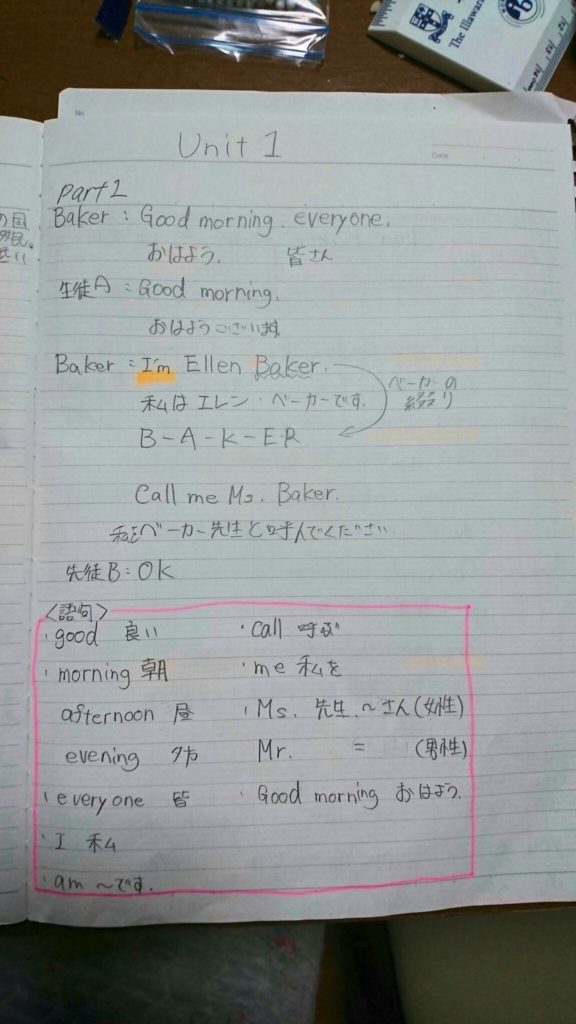 The Illawar
No
Date
Unit 1
part1
Baker : Good morning. everyone.
おはよう. 皆さん
生徒A : Good morning.
おはようございます
Baker : I'm Ellen Baker.
ベーカーの
綴り
私はエレン・ベーカーです.
B-A-K-E-R
Call me Ms. Baker.
私をベーカー先生と呼んでください
先徒B : OK
<語句>
・good 良い ・call 呼ぶ
・morning 朝 ・me 私を
afternoon 昼 ・Ms. 先生.~さん(女性)
evening 夕方 Mr. = (男性)
・everyone 皆 ・Good morning おはよう.
・I 私
・am ~です.